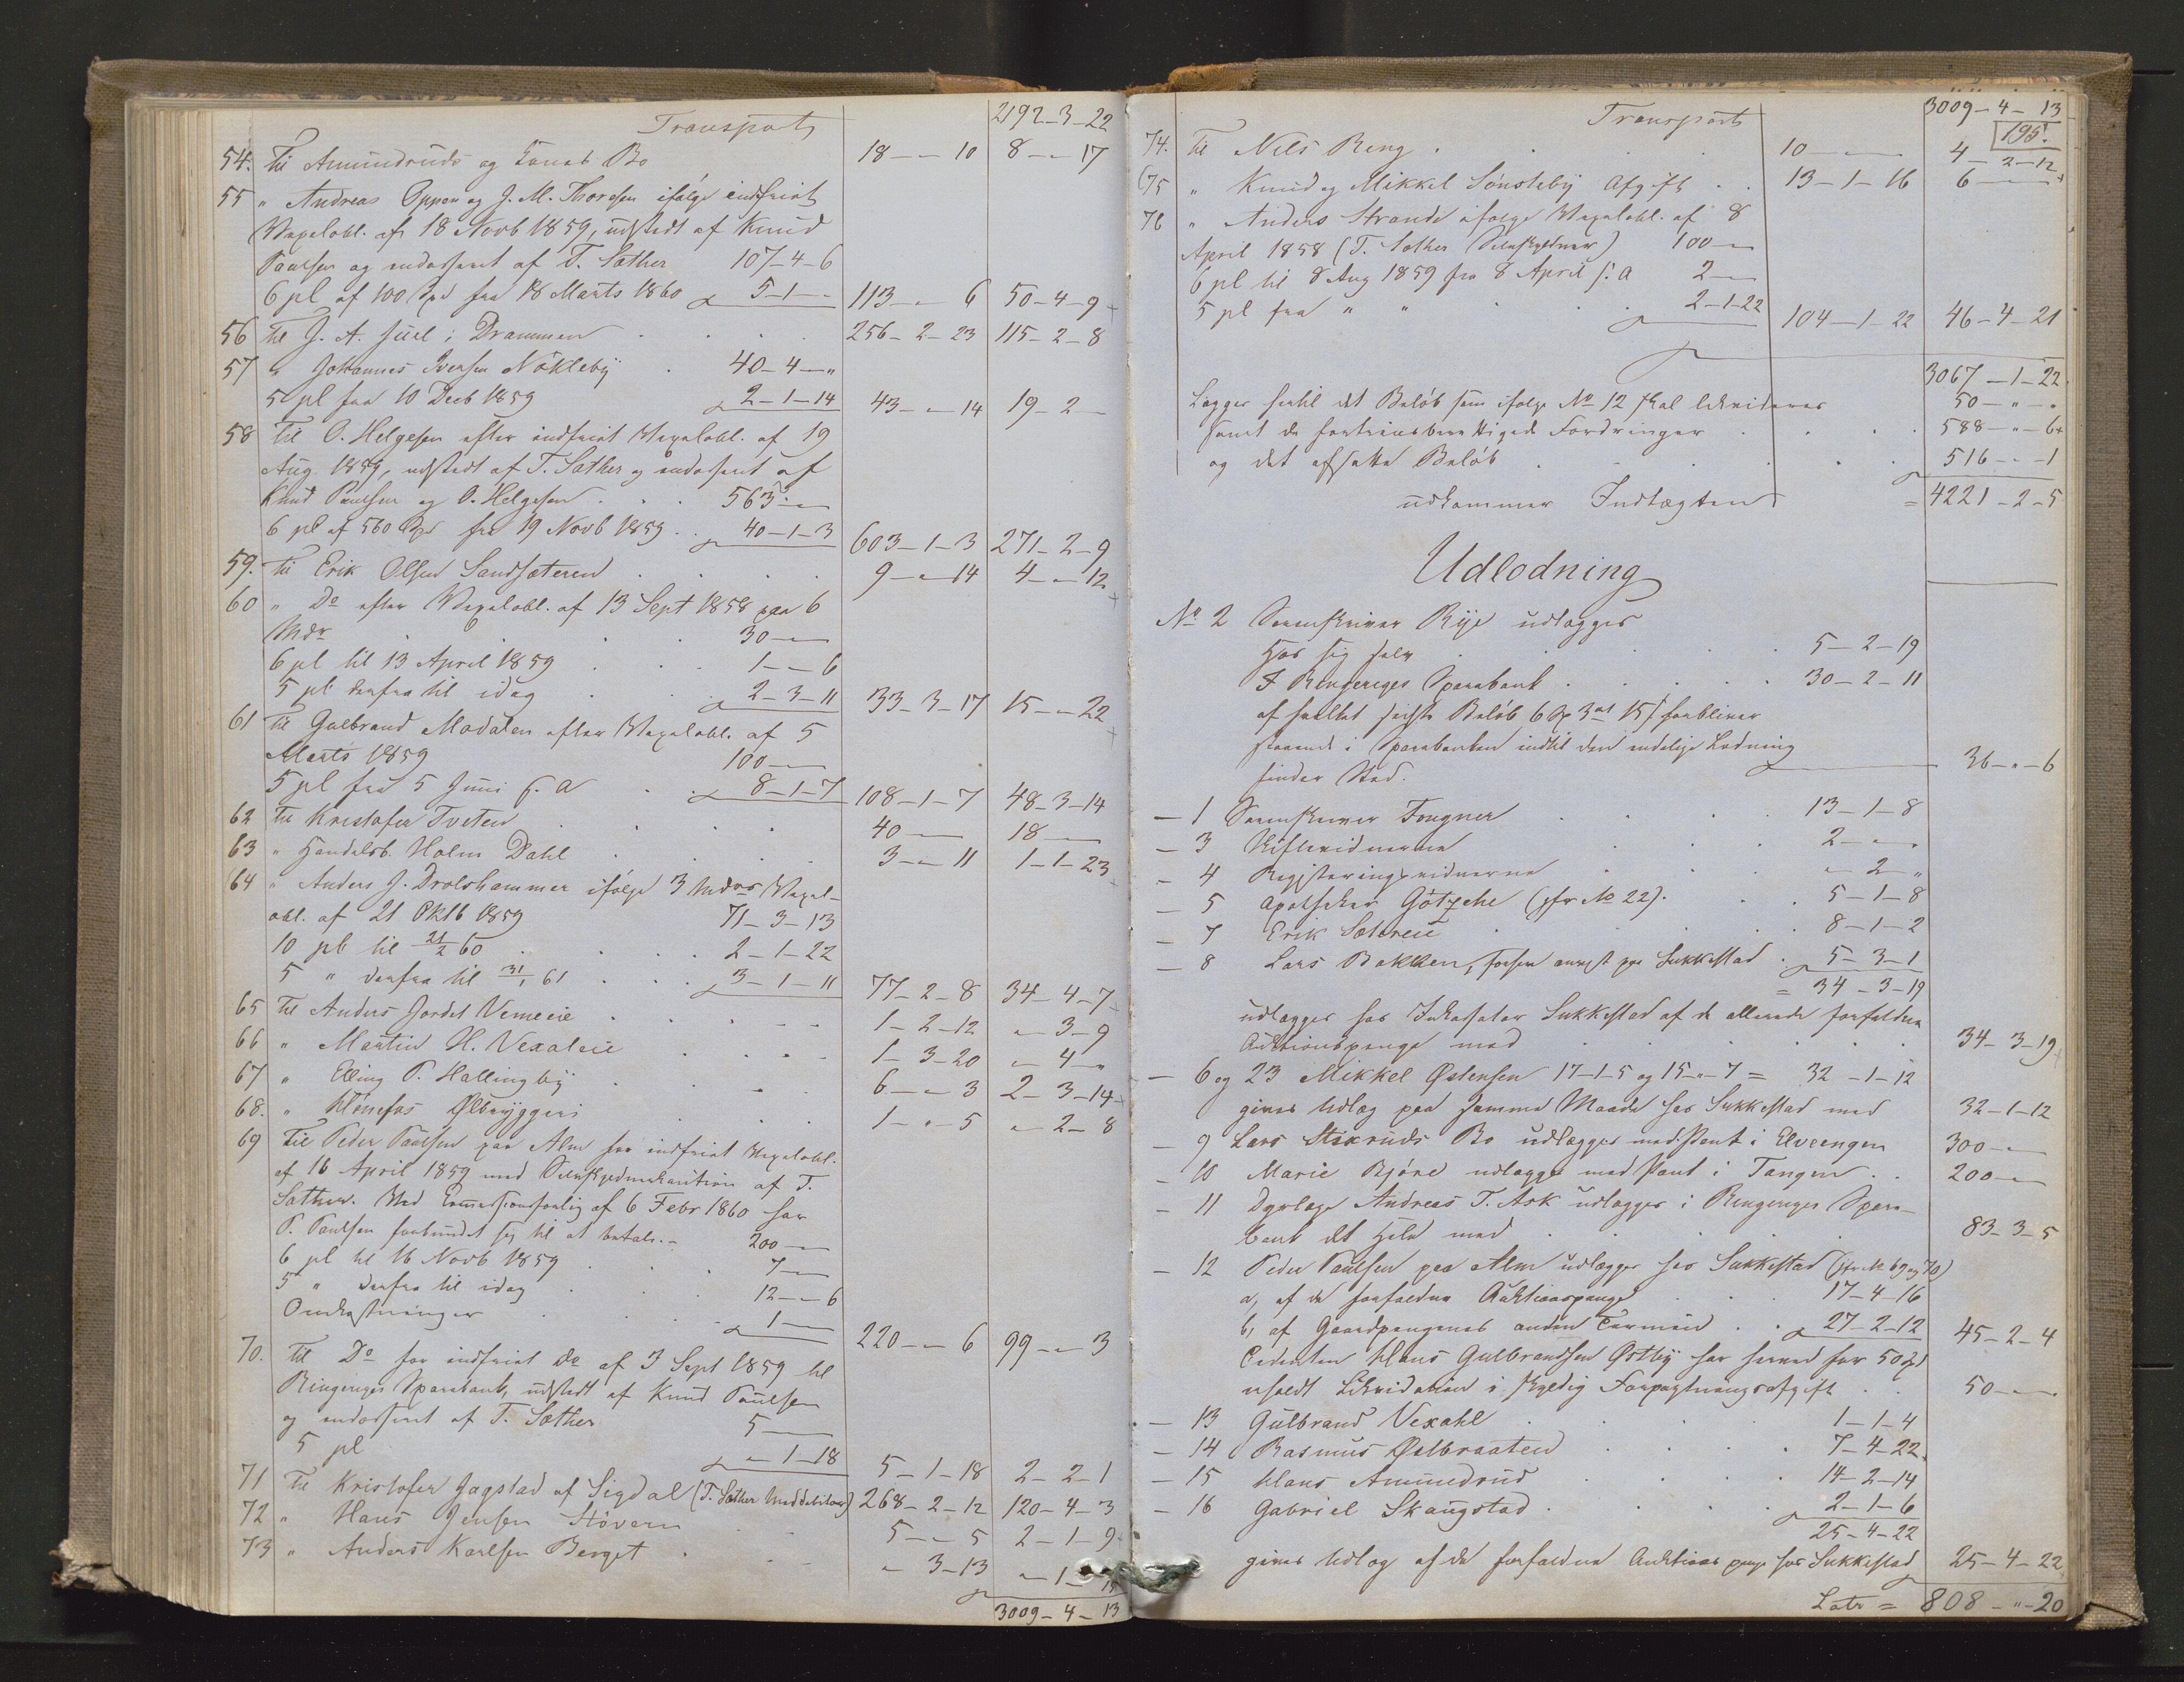 Transport 2192-3-22
54. Til Amundruds og Konas Bo 18-"-10 8-"-17
55 " Andreas Oppen og J. M. Thoresen ifølge indfriet
Vexelobl. af 18 Novb 1859, udstedt af Knud
Paulsen og endosseret af T. Sæther 107-4-6
6 pCt af 100 Spd fra 18 Marts 1860 5-1-" 113-"-6 50-4-9
56 Til J. A. Juel i Drammen 256-2-23 115-2-8
57 " Johannes Iversen Nökleby 40-4-"
5 pCt fra 10 Decb 1859 2-1-14 43-"-14 19-2-
58 Til O. Helgesen efter indfriet Vexelobl. af 19
Aug. 1859, udstedt af T. Sæther og endosseret af
Knud Paulsen og O. Helgesen 563-"-
6 pCt af 560 Spd fra 19 Novb 1859 40-1-3 603-1-3 271-2-9
59. Til Erik Olsen Sandsæteren 9-"-14 4-"-12
60 " Do efter Vexelobl. af 13 Sept 1858 paa 6
Mdr 30-"-
6 pCt til 13 April 1859 1-"-6
5 pCt derfra til idag 2-3-11 33-3-17 15-"-22
61 Til Gulbrand Modalen efter Vexelobl. af 5
Marts 1859 100-"-
5 pCt fra 5 Juni s. A 8-1-7 108-1-7 48-3-14
62 Til Kristofer Tveten 40- 18-
63 " Handelsb. Holm Dahl 3-"-11 1-1-23
64 " Anders J. Drolshammer ifølge 3 Mdrs Vexel-
obl. af 21 Oktb 1859 71-3-13
10 pCt til 21/2 60 2-1-22
5 " derfra til 31/1 61 3-1-11 77-2-8 34-4-7
65 Til Anders Jordet Vemeeie 1-2-12 "-3-9
66 " Martin H. Vexaleie 1-3-20 "-4-"
67 " Elling P. Hallingby 6-"-3 2-3-14
68. " Hønefos Ølbryggeri 1-"-5 "-2-8
69 Til Peder Paulsen paa Alm for indfriet Vexelobl.
af 16 April 1859 med Selvskyldnerkaution af T.
Sæther. Ved af 6 Febr 1860 har
P. Paulsen forbundet sig til at betale.- 200-"-
6 pCt til 16 Novb 1859 7-"-
5 " derfra til idag 12-"-6
Omkostninger 1-"- 220-"-6 99-"-3
70. Til Do for indfriet do af 3 Sept 1859 til
Ringeriges Sparebank, udstedt af Knud Paulsen
og endosseret af T. Sæther 5-"-
5 pCt "-1-18 5-1-18 2-2-1
71 Til Kristofer Gagstad af Sigdal (T. Sæther Meddebitor) 268-2-12 120-4-3
72 " Hans Jensen Støvern 5-"-5 2-1-9
73 " Anders Karlsen Berget "-3-13 "-1-15
3009-4-13
Transport 3009-4-13
195.
74. Til Nils Ring 10-"- 4-2-12
75 " Knud og Mikkel Sønsteby Afgift 13-1-16 6-"-
76 " Anders Strande ifølge Vexelobl. af 8
April 1858 (T. Sæther Selvskyldner) 100-"-
6 pCt til 8 Aug 1859 fra 8 April s. A 2-"-
5 pCt fra " " 2-1-22 104-1-22 46-4-21
3067-1-22
Lægges hertil det Beløb som ifølge No 12 skal likvideres 50-"-"
samt de fortrinsberettigede Fordringer 588-"-6
og det afsatte Beløb 516-"-1
udkommer Indtægten = 4221-2-5
Udlodning
No 2 Sorenskriver Rye udlægges
Hos sig selv 5-2-19
I Ringeriges Sparebank 30-2-11
af hvilket sidste Beløb 6 Spd 3 ort 15 s forbliver
staaende i Sparebanken indtil den endelige Lodning
finder Sted. 36-"-6
- 1 Sorenskriver Fougner 13-1-8
- 3 Skiftevidnerne 2-"-"
- 4 Registeringsvidnerne "-2-"
- 5 Apotheker Götzche (jfr No 22). 5-1-8
- 7 Erik Sætereie 8-1-2
- 8 Lars Bakken, forhen ansat paa Sukkestad 5-3-1
= 34-3-19
udlægges hos Inkasator Sukkestad af de allerede forfaldne
Auktionspenge med 34-3-19
- 6 og 23 Mikkel Østensen 17-1-5 og 15-"-7 = 32-1-12
gives Udlæg paa samme Maade hos Sukkestad med 32-1-12
- 9 Lars Stixruds Bo udlægges med Pant i Elveengen 300-"-
- 10 Marie Bjóre udlægges med Pant i Tangen 200-"-
- 11 Dyrlæge Andreas T. Ask udlægges i Ringeriges Spare-
bank det Hele med 83-3-5
- 12 Peder Paulsen paa Alm udlægges hos Sukkestad (jfr No 69 og 70)
a, af de forfaldne Auktionspenge 17-4-16
b, af Gaardpengenes anden Termin 27-2-12 45-2-4
Cedenten Klaus Gulbrandsen Østby har herved for 50 Spd
nydt Likvidation i skyldig Forpagtningsafgift 50-"-
- 13 Gulbrand Vexahl 1-1-4
- 14 Rasmus Østbraaten 7-4-22
- 15 Klaus Amundrud 14-2-14
- 16 Gabriel Skaugstad 2-1-6
25-4-22
gives Udlæg af de forfaldne Auktionspenge hos Sukkestad 25-4-22
Latr = 808-"-20